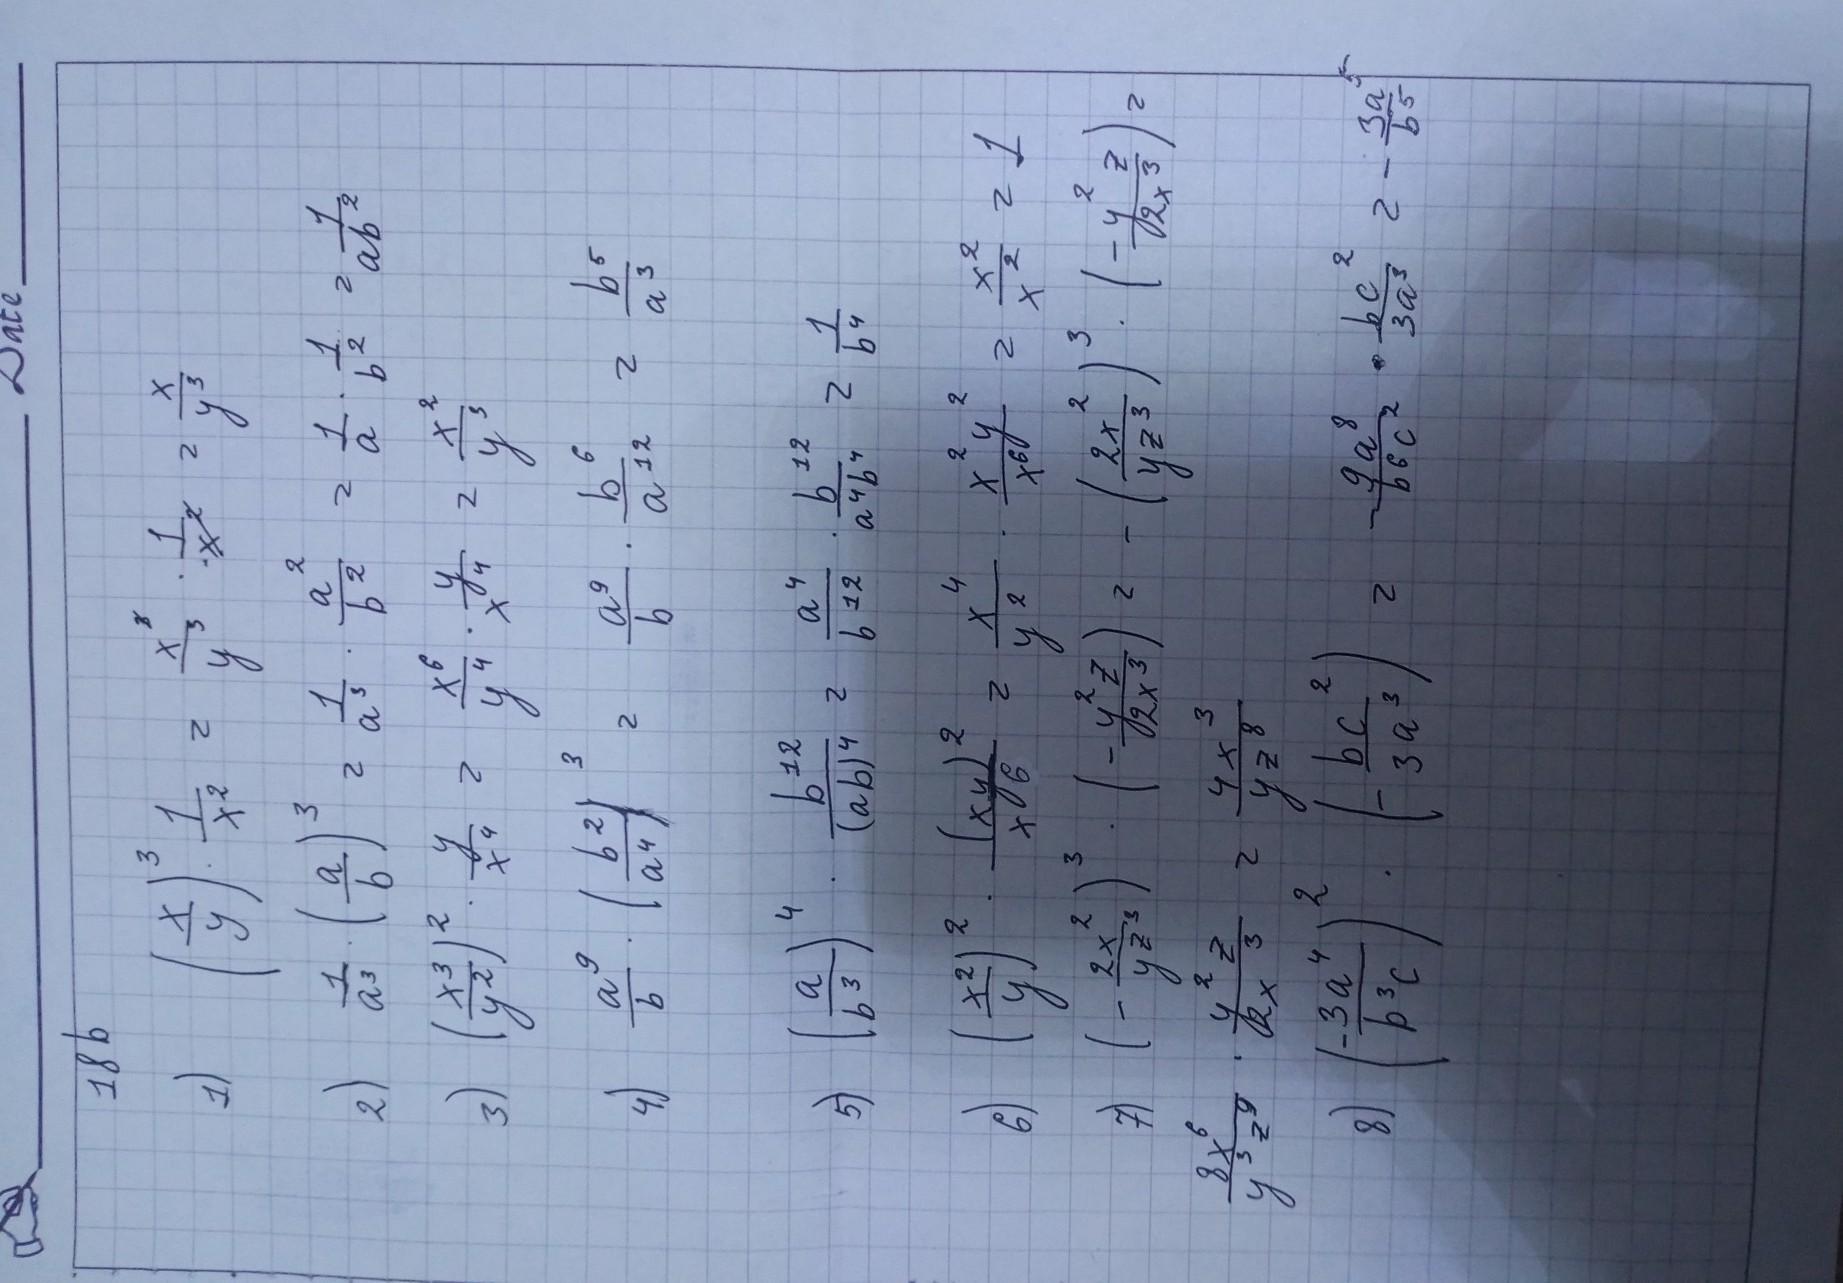 Date
18b
1) (x/y)^3 · 1/x^2 = x^3/y^3 · 1/x^2 = x/y^3
2) 1/a^3 · (a/b)^3 = 1/a^3 · a^2/b^2 = 1/a · 1/b^2 = 1/ab^2
3) (x^3/y^2)^2 · y/x^4 = x^6/y^4 · y/x^4 = x^2/y^3
4) a^9/b · (b^2/a^4)^3 = a^9/b · b^6/a^12 = b^5/a^3
5) (a/b^3)^4 · b^12/(ab)^4 = a^4/b^12 · b^12/a^4b^4 = 1/b^4
6) (x^2/y)^2 · (xy)^2/x^6 = x^4/y^2 · x^2y^2/x^6 = x^2/x^2 = 1
7) (-2x^2/yz^3)^3 · (-y^2z/2x^3) = -(2x^2/yz^3)^3 · (-y^2z/2x^3) =
8x^6/y^3z^9 · y^2z/2x^3 = 4x^3/yz^8
8) (-3a^4/b^3c)^2 · (-bc^2/3a^3) = -9a^8/b^6c^2 · bc^2/3a^3 = -3a^5/b^5